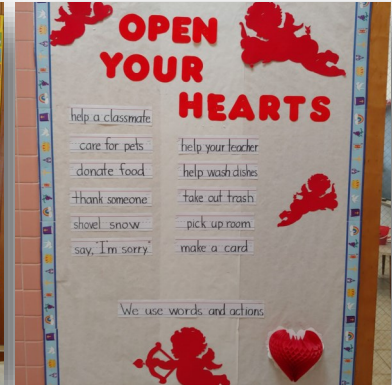 OPEN
YOUR
HEARTS
help a classmate
care for pets
donate food
thank someone
shovel snow
say, "I'm sorry"
help your teacher
help wash dishes
take out trash
pick up room
make a card
We use words and actions